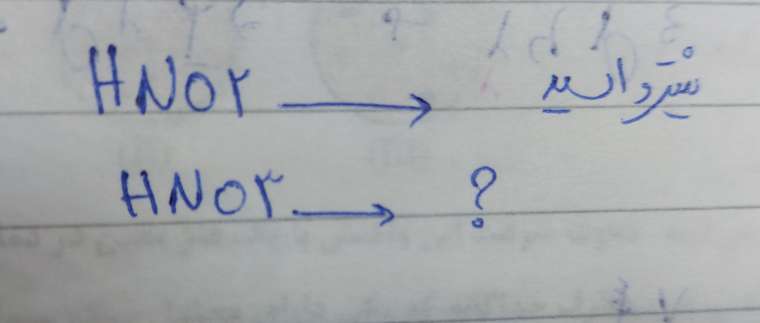 HNO۲ → نیترو اسید
HNO۳ → ?